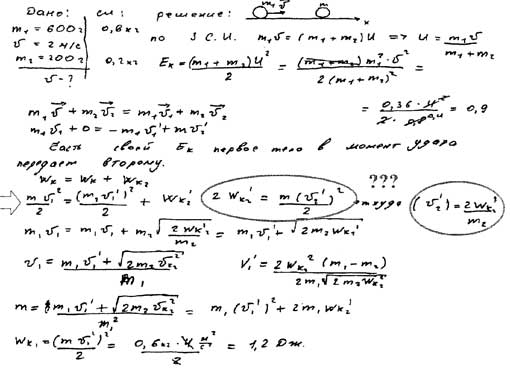 Дано: см: решение: m₁ v⃗ m x
m₁ = 600г | 0,6кг
v = 2м/с
m₂ = 200г | 0,2кг
v - ?
по З.С.И. m₁v = (m₁ + m₂)U => U = m₁v / (m₁ + m₂)
Eк = (m₁ + m₂)U² / 2 = (m₁ + m₂) m₁² · v² / 2(m₁ + m₂)² =
= 0,36 · 4 / 2 · 0,8 = 0,9
m₁v⃗ + m₂v⃗₂ = m₁v⃗₁ + m₂v⃗₂
m₁v₁ + 0 = -m₁v₁' + mv₂'
Часть своей Eк первое тело в момент удара
передает второму.
Wк = Wк + Wк₂
m v₁² / 2 = (m₁v₁')² / 2 + Wк₂' 2Wк₂' = m(v₂')² / 2 ??? откуда (v₂') = 2Wк₂' / m₂
m₁v₁ = m₁v₁' + m₂√(2Wк₂' / m₂) = m₁v₁' + √(2m₂Wк₂')
v₁ = m₁v₁' + √(2m₂v₂²) / m₁ V₁' = 2Wк₂² (m₁ - m₂) / 2m₁√(2m₂Wк₂²)
m = m₁v₁' + √(2m₂v₂²) / m₁² = m₁(v₁')² + 2m₁Wк₂'
Wк₁ = (m v₁')² / 2 = 0,6кг · 4 м²/с² / 2 = 1,2 Дж.